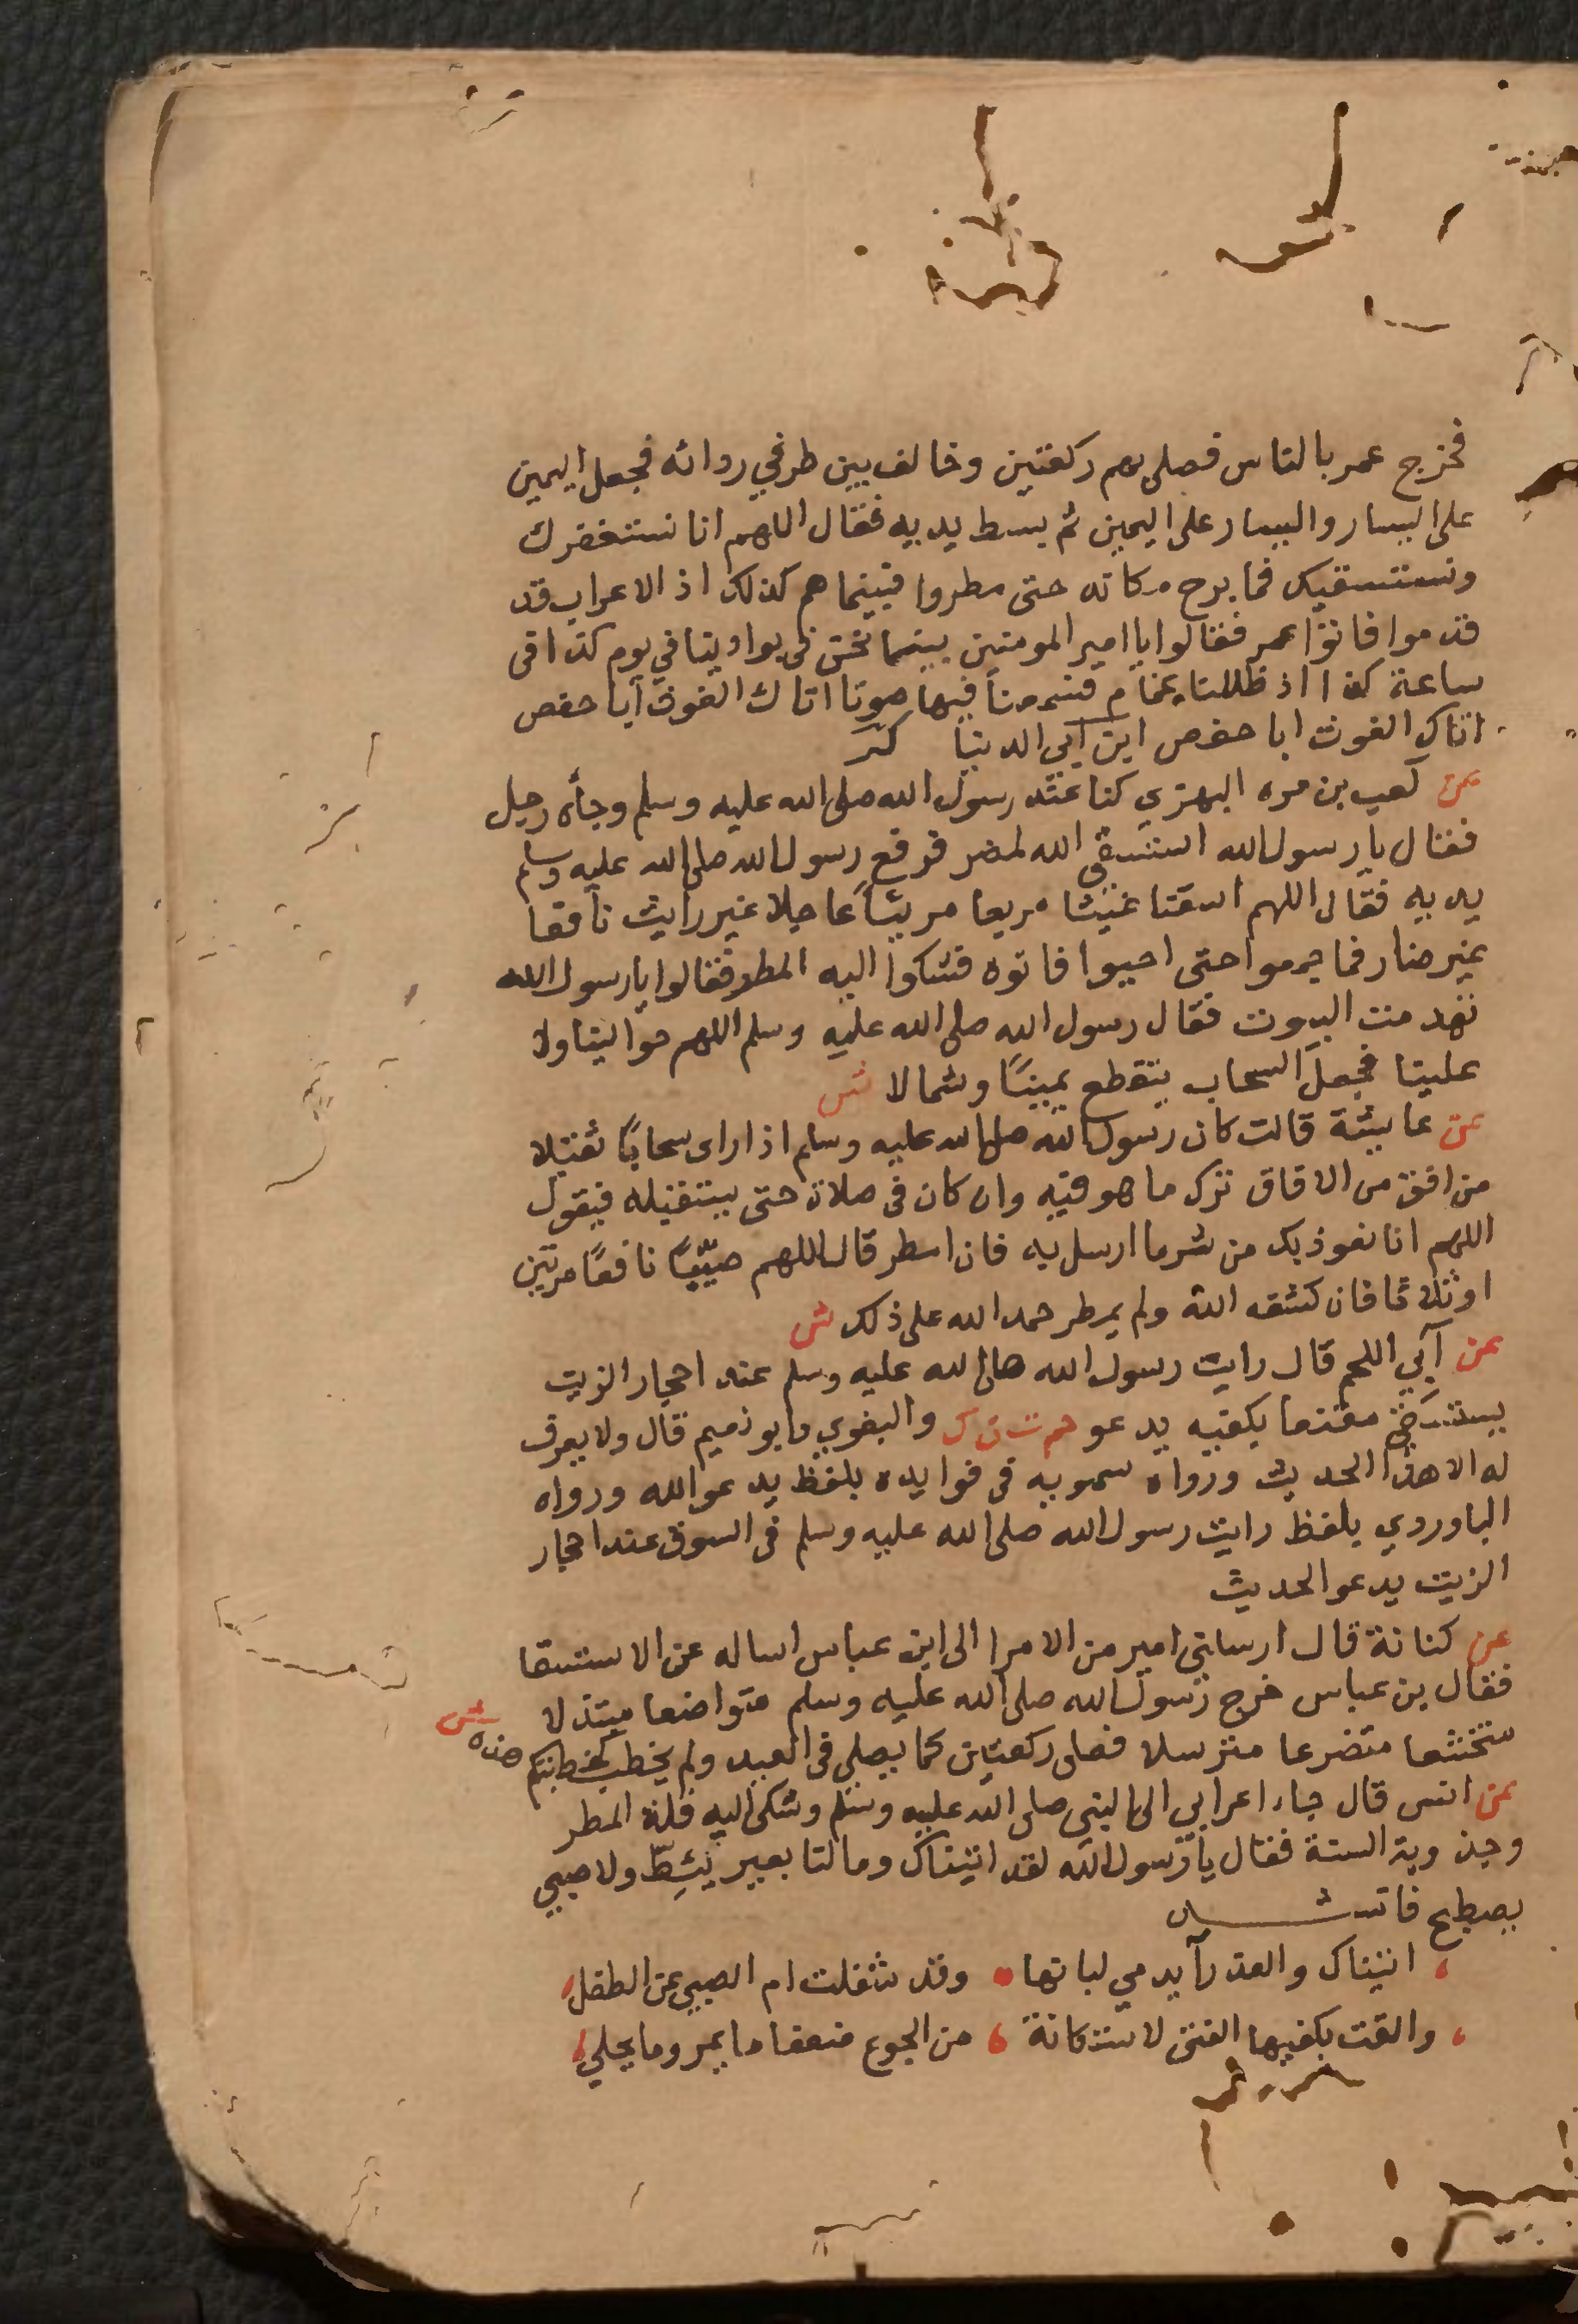 فخرج عمر بالناس فصلى بهم ركعتين وخالف بين طرفي ردائه فجعل اليمين
على اليسار واليسار على اليمين ثم بسط يديه فقال اللهم انا نستغفرك
ونستسقيك فما برح مكانه حتى مطروا فبينما هم كذلك اذ الاعراب قد
قدموا فاتوا عمر فقالوا يا امير المومنين بينما نحن في بوادينا في يوم كذا في
ساعة كذا اذ ظللنا غمام فسمعنا فيها صوتا اتاك الغوث ابا حفص
اتاك الغوث ابا حفص ابن ابي الدنيا كر
عن كعب بن مره البهزي كنا عند رسول الله صلى الله عليه وسلم وجأه رجل
فقال يا رسول الله استسقي الله لمضر فرفع رسول الله صلى الله عليه وسلم
يديه فقال اللهم اسقنا غيثا مريعا مريئا عاجلا غير رايث نافعا
غير ضار فما جمعوا حتى احيوا فاتوه فشكوا اليه المطر فقالوا يا رسول الله
تهدمت البيوت فقال رسول الله صلى الله عليه وسلم اللهم حوالينا ولا
علينا فجعل السحاب يتقطع يمينًا وشمالا ش
عن عايشة قالت كان رسول الله صلى الله عليه وسلم اذا راى سحابًا ثقيلا
من افق من الافاق ترك ما هو فيه وان كان في صلاة حتى يستقبله فيقول
اللهم انا نعوذ بك من شر ما ارسل به فان امطر قال اللهم صيّبًا نافعًا مرتين
او ثلاثا فان كشفه الله ولم يمطر حمد الله على ذلك ش
عن آبي اللحم قال رايت رسول الله صلى الله عليه وسلم عند احجار الزيت
يستسقي مقنعا بكفيه يدعو حم ت ن ك والبغوي وابو نعيم قال ولا يعرف
له الا هذا الحديث ورواه سمويه في فوايده بلفظ يدعو الله ورواه
الباوردي بلفظ رايت رسول الله صلى الله عليه وسلم في السوق عند احجار
الزيت يدعو الحديث
عن كنانة قال ارسلني امير من الامرا الى ابن عباس اساله عن الاستسقا
فقال بن عباس خرج رسول الله صلى الله عليه وسلم متواضعا مبتذلا
متخشعا متضرعا مترسلا فصلى ركعتين كما يصلي في العيد ولم يخطب كخطبتكم هذه ش
عن انس قال جاء اعرابي الى النبي صلى الله عليه وسلم وشكى اليه قلة المطر
وجدوبة السنة فقال يا رسول الله لقد اتيناك وما لنا بعير يئطّ ولا صبي
يصطبح فانشد
اتيناك والعذرآ يدمي لبانها وقد شغلت ام الصبي عن الطفل
والقت بكفيها الفتى لاستكانة من الجوع ضعفا ما يمر وما يحلي